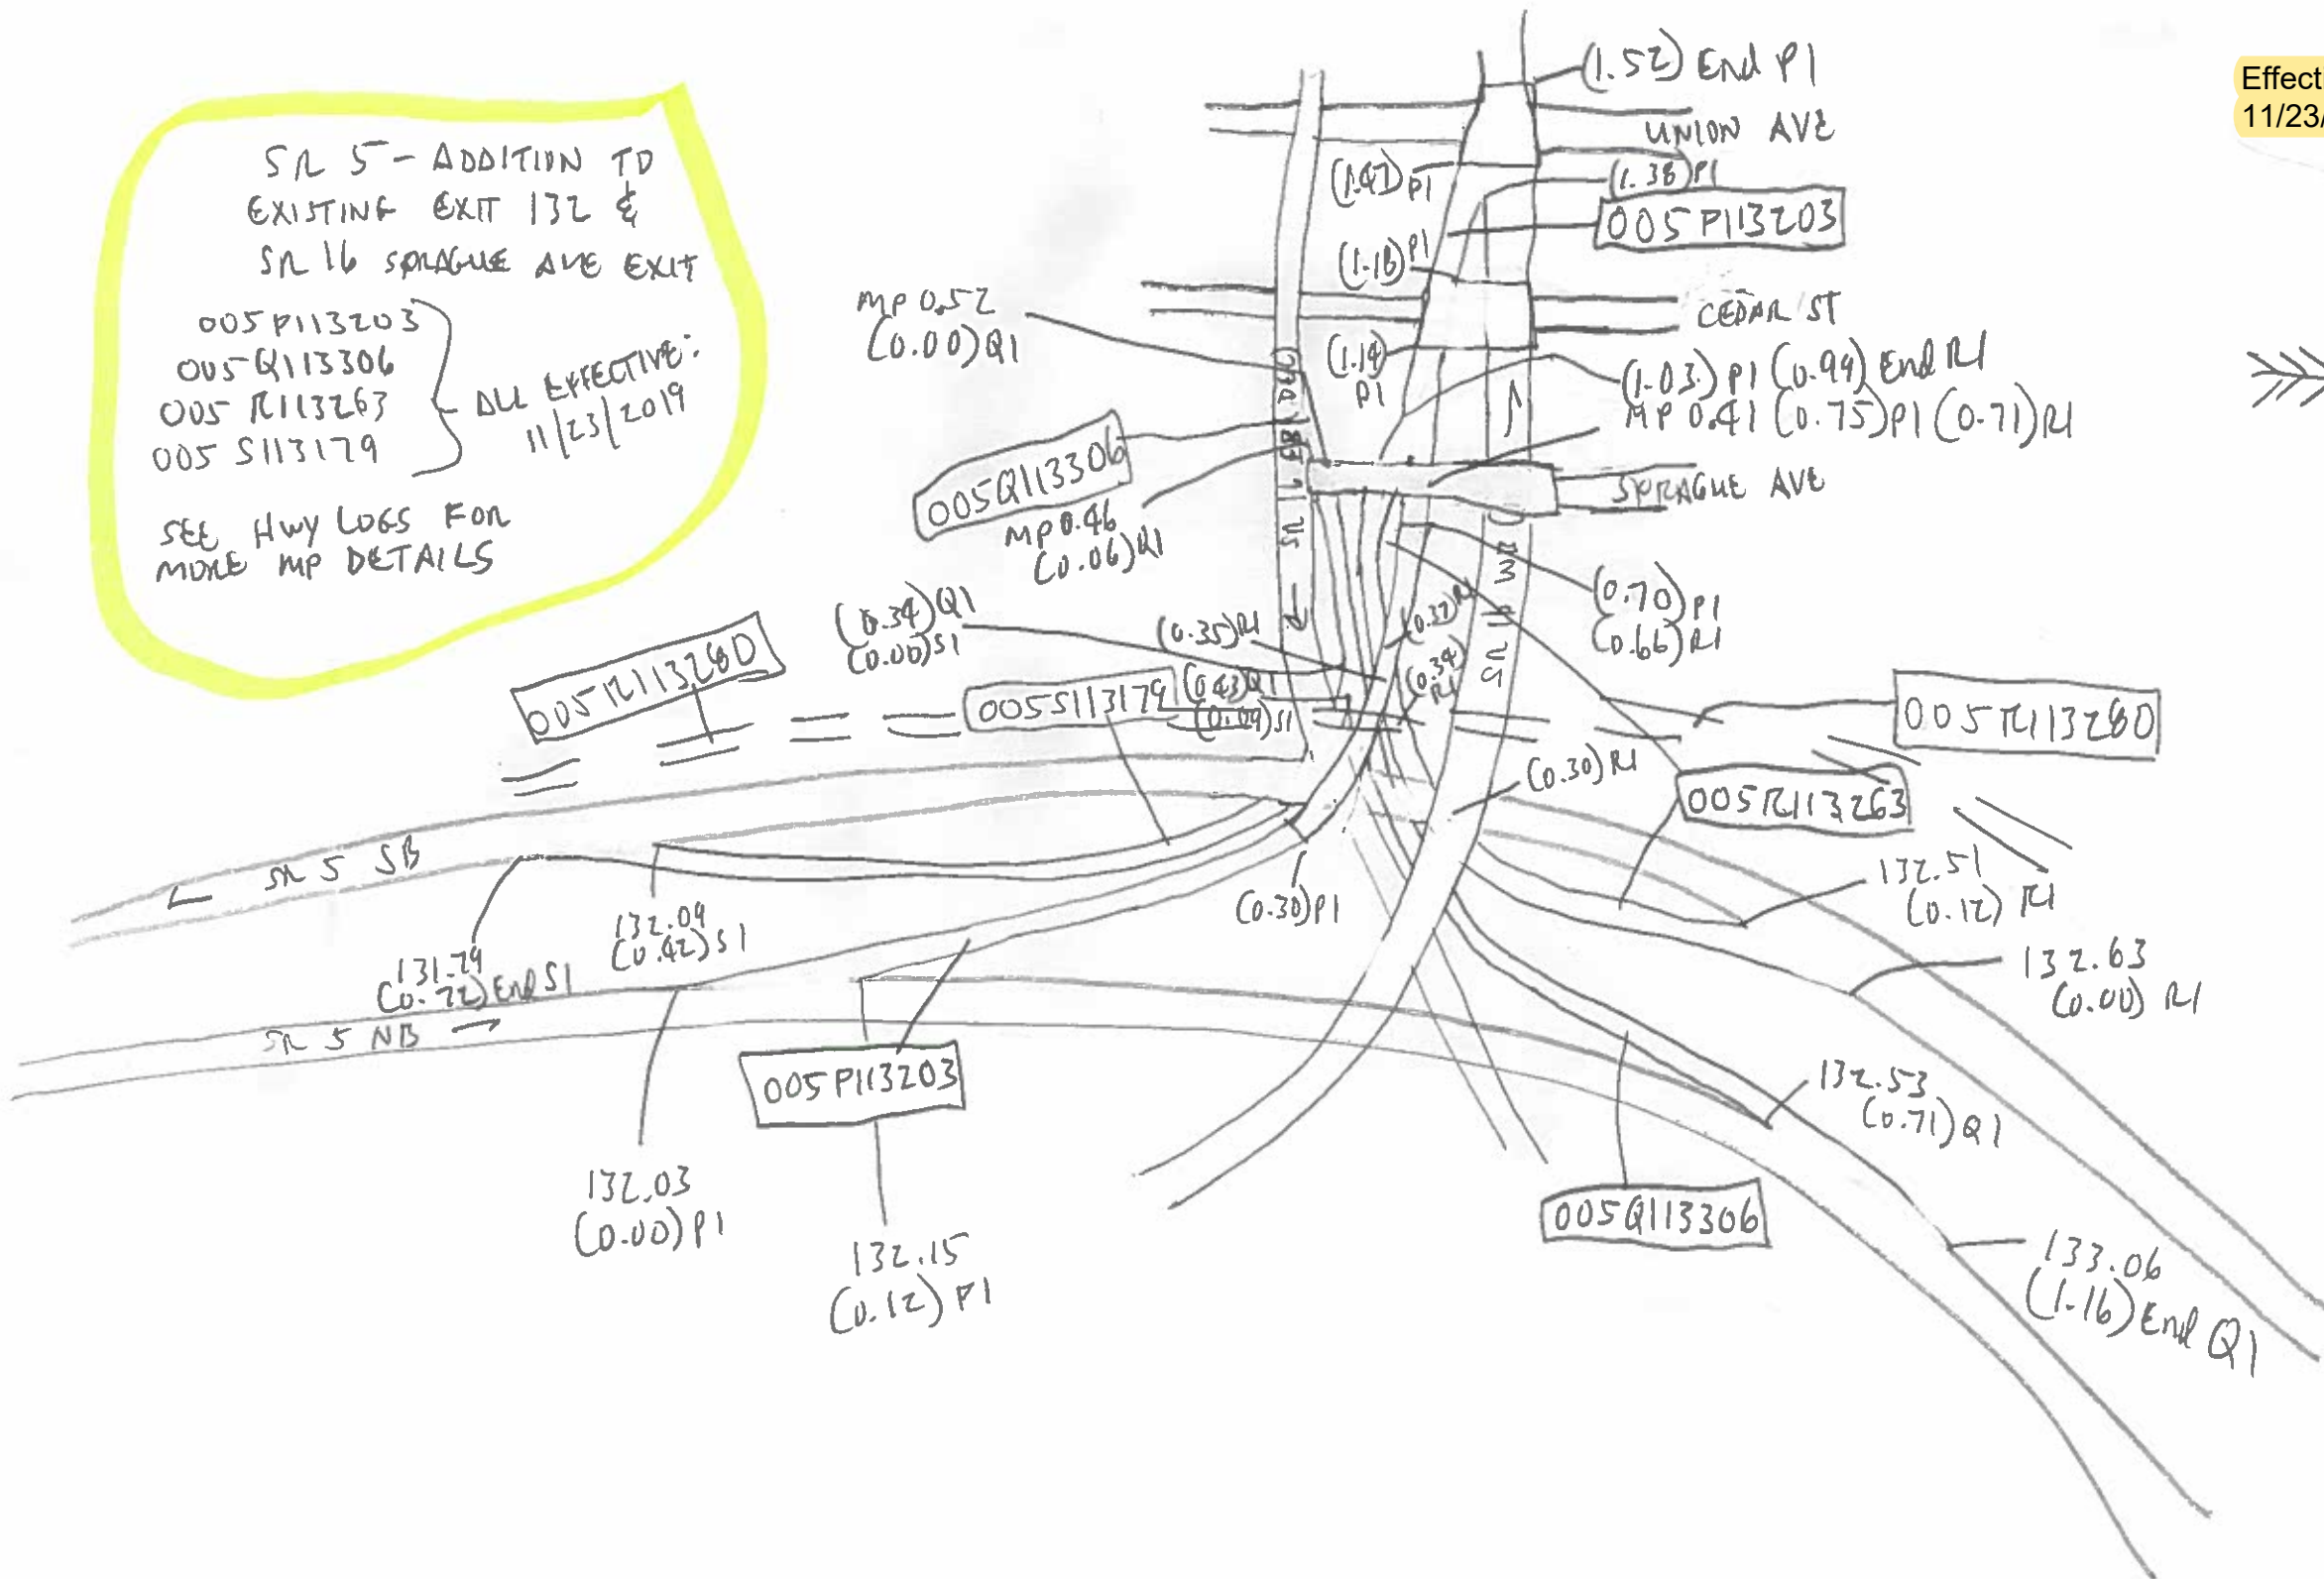 SR 5 - ADDITION TO
EXISTING EXIT 132 &
SR 16 SPRAGUE AVE EXIT
005P113203
005Q113306
005R113263
005S113179
ALL EFFECTIVE:
11/23/2019
SEE HWY LOGS FOR
MORE MP DETAILS
Effect
11/23/
(1.52) End P1
UNION AVE
(1.47) P1
(1.38) P1
005P113203
(1.18) P1
CEDAR ST
MP 0.52
(0.00) Q1
(1.14)
P1
(1.03) P1 (0.99) End R1
MP 0.41 (0.75) P1 (0.71) R1
SPRAGUE AVE
005Q113306
MP 0.46
(0.06) Q1
(0.70) P1
(0.66) R1
(0.34) Q1
(0.00) S1
(0.35) R1
(0.37) R1
(0.34)
R1
005R113280
005S113179
(0.43) Q1
(0.09) S1
005R113280
(0.30) R1
005R113263
SR 5 SB
132.51
(0.12) R1
(0.30) P1
132.09
(0.42) S1
131.79
(0.72) End S1
132.63
(0.00) R1
SR 5 NB
005P113203
132.53
(0.71) Q1
132.03
(0.00) P1
132.15
(0.12) P1
005Q113306
133.06
(1.16) End Q1